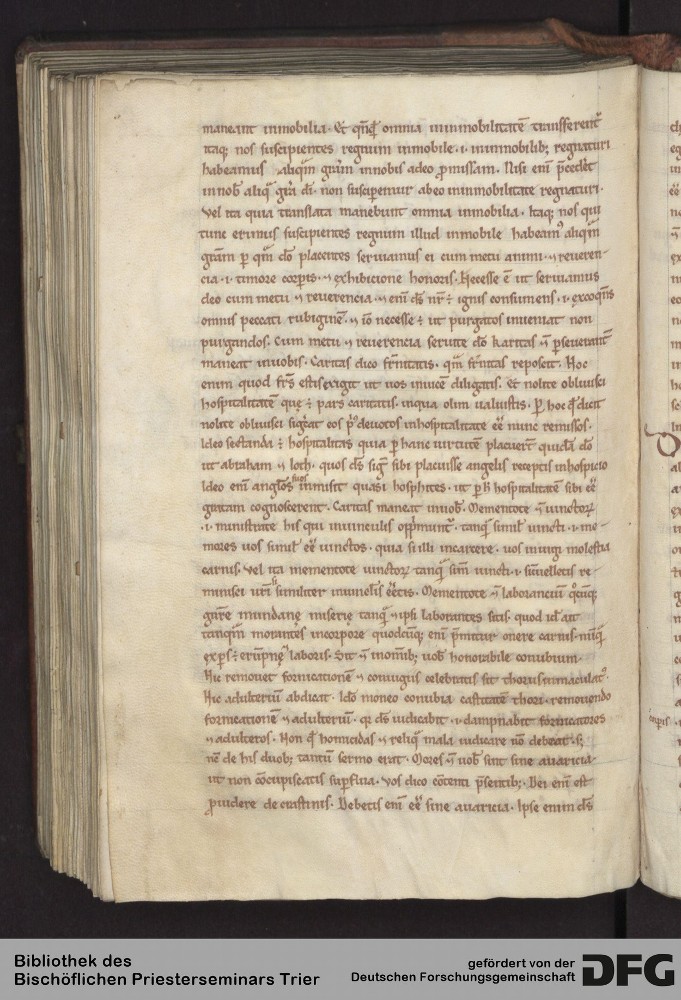 maneant inmobilia · Et qñq̃ omnia ininmobilitatē transferent᷑
itaq; nos suscipientes regnum inmobile · i · ininmobilib; regnaturi
habeamus aliqm̄ gr̄am innobis adeo p̄missam. Nisi enī p̄cedet
innob̄ aliq̄ gr̄a dī · non suscipemur abeo ininmobilitate regnaturi ·
Vel ita quia translata manebunt omnia inmobilia · Itaq; nos qui
tunc erimus suscipientes regnum illud inmobile habeam᷒ aliqm̄
gr̄am ꝑ qm̄ dō placentes seruiamus ei cum metu animi · ⁊ reueren-
cia · i · timore corꝑis · ⁊ exhibicione honoris · Necesse ē ut seruiamus
deo cum metu ⁊ reuerencia · ⁊ enī ds̄ nr̄ ÷ ignis consumens · i · excoq̄ns
omnis peccati rubiginē · ⁊ iō necesse ÷ ut purgatos inueniat non
purgandos · Cum metu ⁊ reuerencia seruite dō karitas ⁊ p̄seuerant᷑
maneat inuobis · Caritas dico fr̄nitatis · qm̄ fr̄nitas reposcit · Hoc
enim quod fr̄s estis exigit ut uos inuicē diligatis · Et nolite obliuisci
hospitalitatē quę ÷ pars caritatis · inqua olim ualuistis · Ꝑ hoc q̄ dicit
nolite obliuisci sig̃cat eos p᷒ deuotos inhospitalitate eē nunc remissos ·
Ideo sectanda ÷ hospitalitas quia ꝑ hanc uirtutē placuer̄t quidā dō
ut abraham ⁊ loth · quos ds̄ sig̃ sibi placuisse angelis receptis inhospicio
Ideo enī anglōs suos inmisit quasi hosphites · ut ꝑ h̄ hospitalitatē sibi eē
gratam cognoscerent · Caritas maneat inuob̄ · Mementote ⁊ uinctoꝝ
· i · ministrate his qui inuinculis opp̄munt᷑ · tanq̄ simil̄ uincti · i · me-
mores uos simil̄ eē uinctos · quia si illi incarcere · uos iniugi molestia
carnis · Vel ita mementote uinctoꝝ tanq̄ sim̄ uincti · i · similetis re-
minisci ur̄i similiter inuincl̄is eētis · Mementote ⁊ laboranciū q̄cūq;
gn̄re mundanę miserię tanq̄ ⁊ ipsi laborantes sitis · quod id ait
tanqm̄ morantes incorpore quodcūq; enī p̄mitur onere carnis · nūq̄
exꝑs ÷ erūpnę laboris · Sit ⁊ inom̄ib; uob̄ honorabile conubium ·
Hic remouet fornicationē ⁊ coniugiis celebratis sit thorus inmaculat᷒ ·
Hic adulteriū abdicat · Ideo moneo conubia castitatē thori · remouendo
fornicationē ⁊ adulteriū · qr ds̄ iudicabit · i · dampnabit fornicatores
⁊ adulteros · Non q̄ homicidas ⁊ reliq̄ mala iudicare nō debeat · s;
nē de his duob; tantū sermo erat · Mores ⁊ uob̄ sint sine auaricia ·
ut non cōcupiscatis suꝑflua · Vos dico cōtenti p̄sentib; · Dei enī est
p̄uidere de crastinis · Debetis enī eē sine auaricia · Ipse enim ds̄
Bibliothek des
Bischöflichen Priesterseminars Trier
gefördert von der
Deutschen Forschungsgemeinschaft
DFG